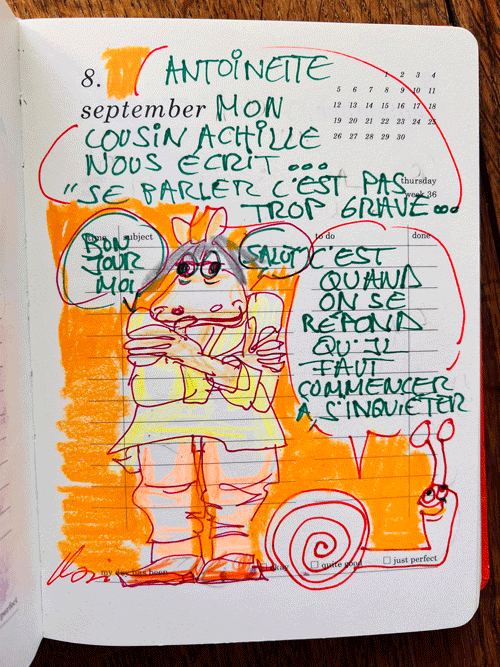 8.
september
1 2 3 4
5 6 7 8 9 10 11
12 13 14 15 16 17 18
19 20 21 22 23 24 25
26 27 28 29 30
thursday
week 36
ANTOINETTE
MON
COUSIN ACHILLE
NOUS ECRIT ...
"SE PARLER C'EST PAS
TROP GRAVE...
subject
to do
done
BON
JOUR
MOI
SALUT
C'EST
QUAND
ON SE
RÉPOND
QU'IL
FAUT
COMMENCER
À S'INQUIÉTER
my day has been
okay
quite good
just perfect